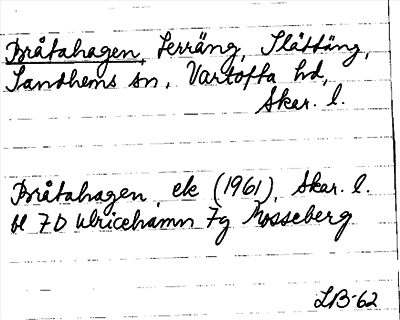 Bråtahagen, Terräng, Slåttäng,
Sandhems sn, Vartofta hd,
Skar. l.
Bråtahagen, ek (1961), Skar. l.
bl 7D Ulricehamn 7g Mosseberg
LB-62